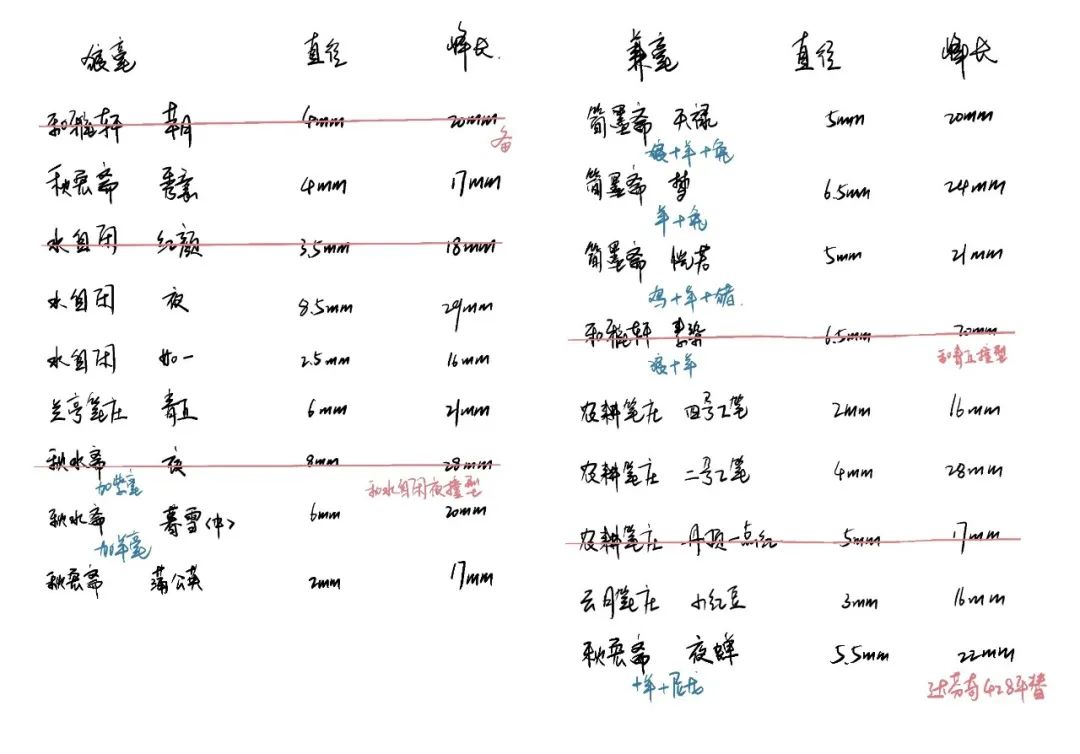 狼毫 直径 峰长
和雅轩 4mm 20mm
备
秋奕斋 4mm 17mm
水自闲 红颜 3.5mm 18mm
水自闲 夜 8.5mm 29mm
水自闲 如一 2.5mm 16mm
兰亭笔庄 青丘 6mm 21mm
秋水斋 夜 8mm 28mm
加紫毫 和水自闲夜撞型
秋水斋 暮雪(中) 6mm 20mm
加羊毫
秋奕斋 蒲公英 2mm 17mm
兼毫 直径 峰长
简墨斋 天禄 5mm 20mm
狼+羊+兔
简墨斋 梦 6.5mm 24mm
羊+兔
简墨斋 5mm 21mm
鸡+羊+猪
和雅轩 素染 6.5mm 20mm
狼+羊 和青丘撞型
农耕笔庄 四号工笔 2mm 16mm
农耕笔庄 二号工笔 4mm 28mm
农耕笔庄 丹顶一点红 5mm 17mm
云月笔庄 小红豆 3mm 16mm
秋奕斋 夜蝉 5.5mm 22mm
+羊+尼龙 达芬奇428平替